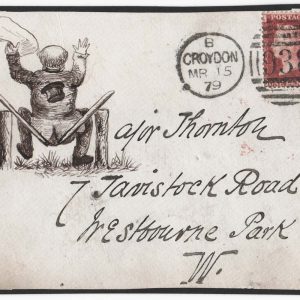 B
CROYDON
MR 15
79
POSTAGE
ajor Thornton
7 Tavistock Road
Westbourne Park
W.